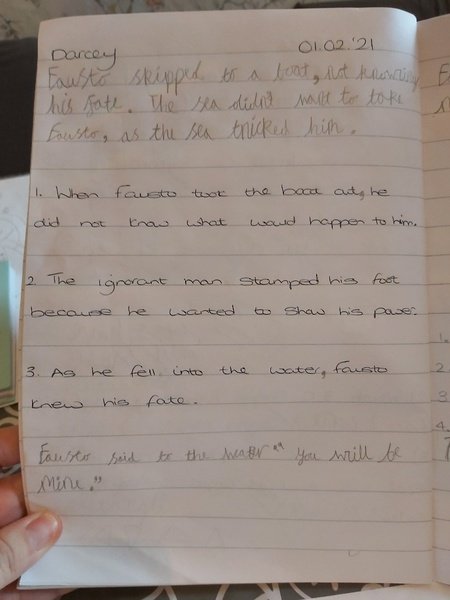 Darcey 01.02.'21
Fausto skipped to a boat, not knowing
his fate. The sea didn't want to take
Fausto, as the sea tricked him.
1. When Fausto took the boat out, he
did not know what would happen to him.
2 The ignorant man stamped his foot
because he wanted to show his power.
3. As he fell into the water, Fausto
knew his fate.
Fausto said to the "You will be
Mine."
1.
2
3
4.